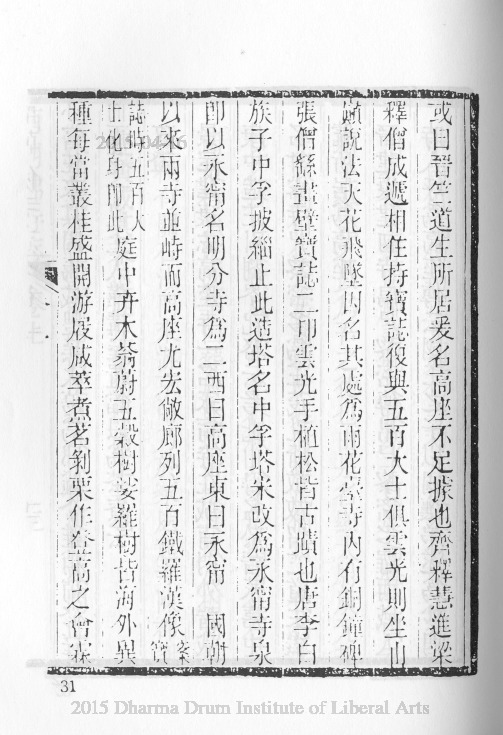 或曰晉竺道生所居爰名高座不足據也齊釋慧進梁
釋僧成遞相住持寶誌復與五百大士俱雲光則坐山
巔說法天花飛墜因名其處為雨花臺寺內有銅鐘碑
張僧繇畫壁寶誌二印雲光手植松皆古蹟也唐李白
族子中孚披緇止此造塔名中孚塔宋改為永甯寺泉
即以永甯名明分寺為二西曰高座東曰永甯 國朝
以來兩寺並峙而高座尤宏敞廊列五百鐵羅漢像案寶
誌時五百大士化身即此庭中卉木蓊蔚五穀樹娑羅樹皆海外異
種每當叢桂盛開游屐咸萃煮茗剝栗作登高之會霖
31
2015 Dharma Drum Institute of Liberal Arts